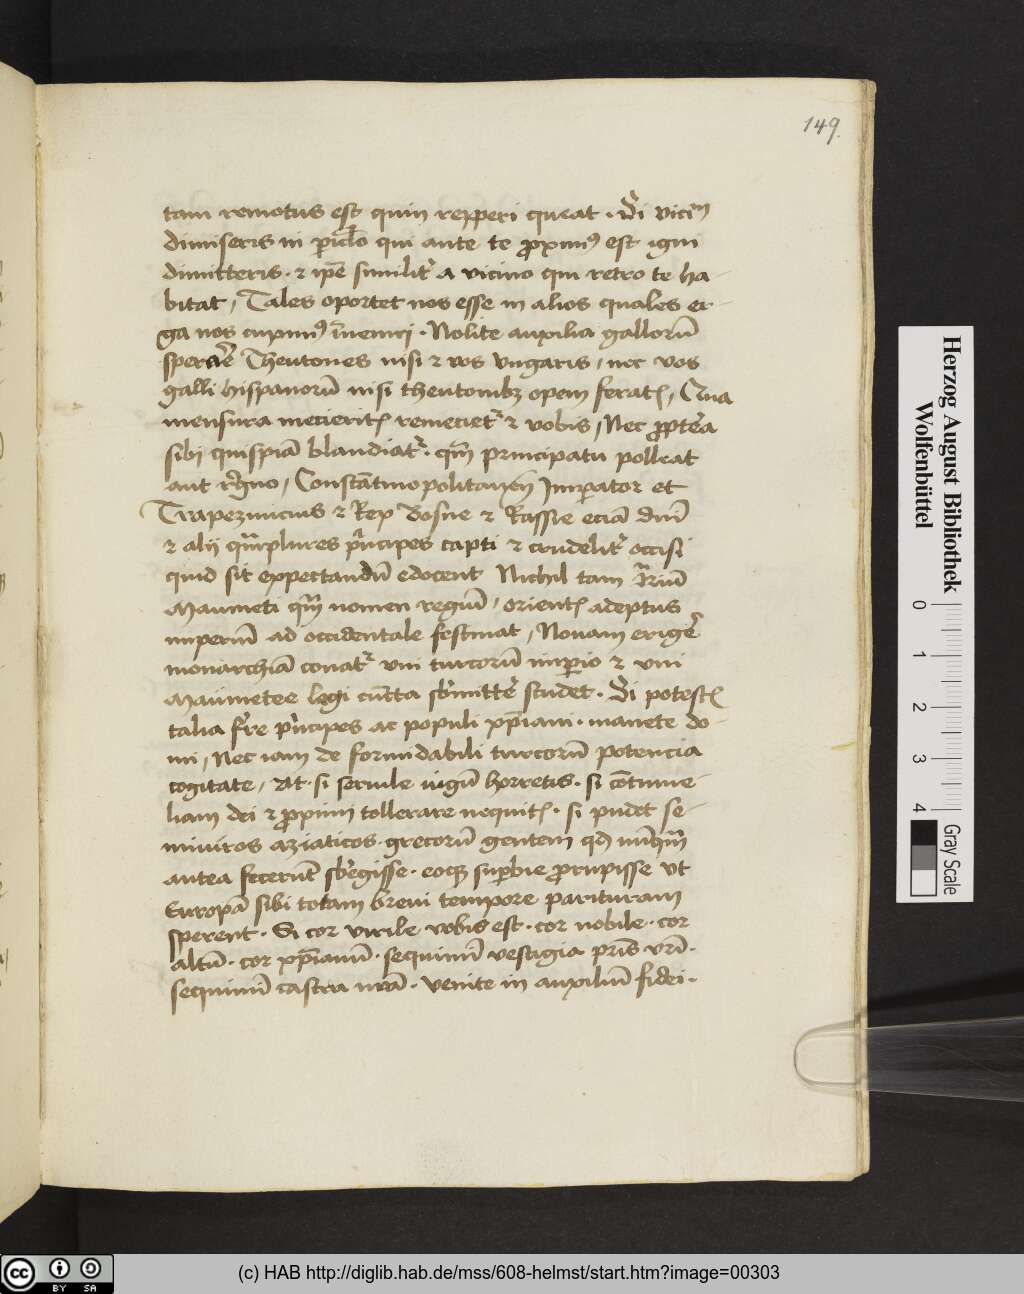 149
tam remotus est quin repperi queat · Si vicin̄
dimiseris in pic̄lo qui ante te p̱ximꝰ est igni
dimitteris · ⁊ ip̄e similit᷑ a vicino qui retro te ha-
bitat, Tales oportet nos esse in alios quales er-
ga nos cupimꝰ īuenirj · Nolite auxilia gallorū
sperar̄e Theutones nisi ⁊ vos vngaris, nec vos
galli hispanorū nisi theutonibꝫ opem feratꝭ, Qua
mensura mecieritꝭ remeciet᷑ ⁊ vobis, Nec ꝓpter̄a
sibj quispiā blandiat᷑ · qm̄ principatu polleat
aut regno, Constātinopolitanꝰ Imperator et
Trapezuncius ⁊ Rex Bosne ⁊ Rassie eciā dm̄
⁊ alij ꝙ̄plures p̄ncipes capti ⁊ crudelit᷑ occisi
quid sit expectandū edocent Nichil tam 9trariū
Maumeti qm̄ nomen regiū, orientꝭ adeptus
imperiū ad occidentale festinat, Nouam eriger̄
monarchiā conat᷑ vni turcorū imp̱io ⁊ vni
Maumetee legi cūcta sb̄mitter̄ studet · Si potestꝭ
talia fer̄re p̄ncipes ac populi xp̄iani · manete do-
mi, Nec iam de formidabili turcorū potencia
cogitate, At · si seruile iugū horretis · si cōtume-
liam dei ⁊ p̱ximi tollerare nequitꝭ · si pudet se-
miuiros aziaticos · grecorū gentem qd̄ nūqm̄
antea fecerūt sb̄egisse · eoqꝫ sup̱bie p̱rupisse vt
Europā sibi totam breui tempore parituram
sperent · Si cor virile vobis est · cor nobile · cor
altū · cor xp̄ianū · sequimī vestigia pr̄is vr̄i ·
sequimī castra nr̄a · venite in auxiliū fidei ·
Herzog August Bibliothek
Wolfenbüttel
0 1 2 3 4
Gray Scale
BY SA
(c) HAB http://diglib.hab.de/mss/608-helmst/start.htm?image=00303